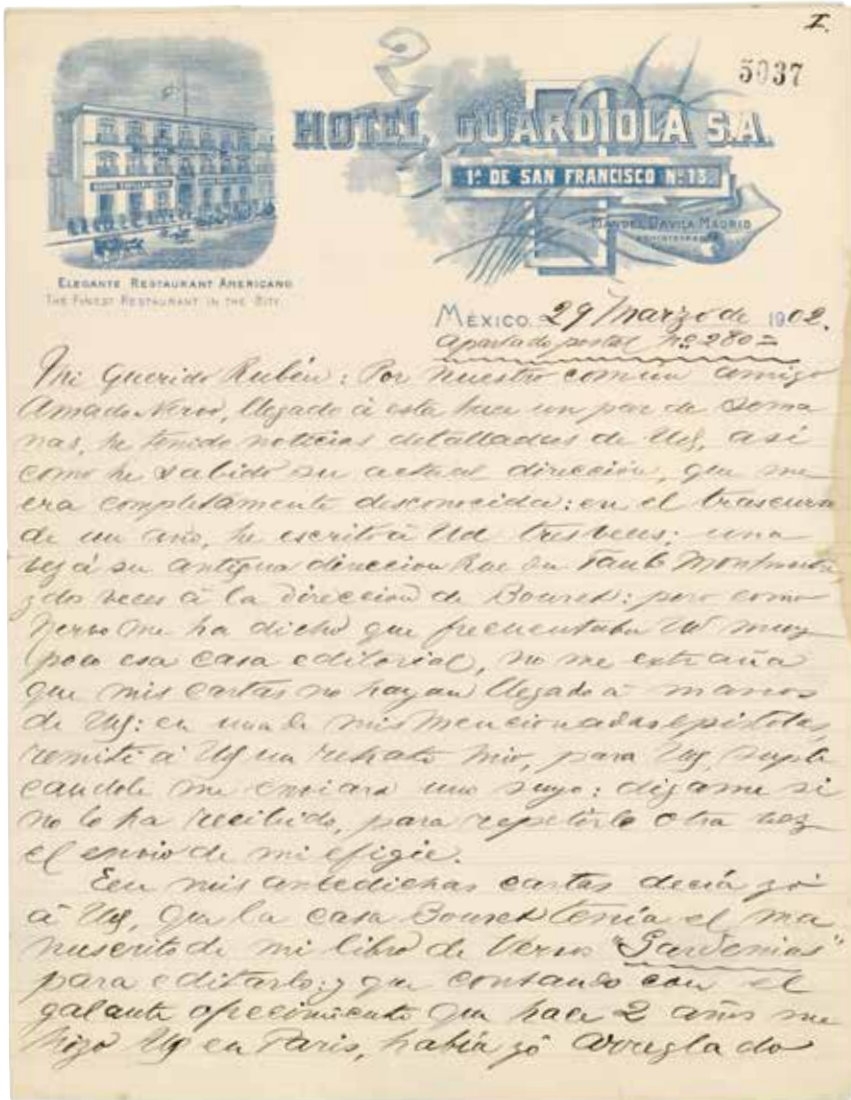 I.
5037
HOTEL GUARDIOLA S.A.
1ª DE SAN FRANCISCO Nº 13.
MANUEL DAVILA MADRID
ADMINISTRADOR
ELEGANTE RESTAURANT AMERICANO
THE FINEST RESTAURANT IN THE CITY.
MÉXICO, 29 Marzo de 1902.
Apartado postal nº 280=
Mi Querido Rubén: Por nuestro común amigo
Amado Nervo, llegado á esta hace un par de sema
nas, he tenido noticias detalladas de Ud, así
como he sabido su actual dirección, que me
era completamente desconocida: en el trascurso
de un año, he escrito á Ud tres veces: una
vez á su antigua direccion Rue du Faub Montmartre
y dos veces á la direccion de Bouret: pero como
Nervo me ha dicho que frecuentaba Ud muy
poco esa casa editorial, no me extraña
que mis cartas no hayan llegado á manos
de Ud: en una de mis mencionadas epistolas,
remití á Ud un retrato mio, para Ud, supli
candole me enviara uno suyo: digame si
no lo ha recibido, para repetirle otra vez
el envio de mi efigie.
En mis antedichas cartas decía yó
á Ud, que la casa Bouret tenía el ma
nuscrito de mi libro de versos "Gardenias"
para editarlo: y que contando con el
galante ofrecimiento que hace 2 años me
hizo Ud en Paris, había yó arreglado